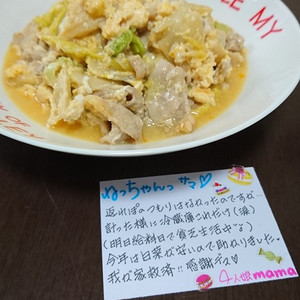 EE MY
ねっちゃんっ サマ♡
返ればのつもりはなかったのですが…
計った様に冷蔵庫これだけ(涙)
(明日給料日で貧乏生活中"≧)
今年は白菜がないので助かりました。
我が家救済!! 感謝デス♡
4人娘mama